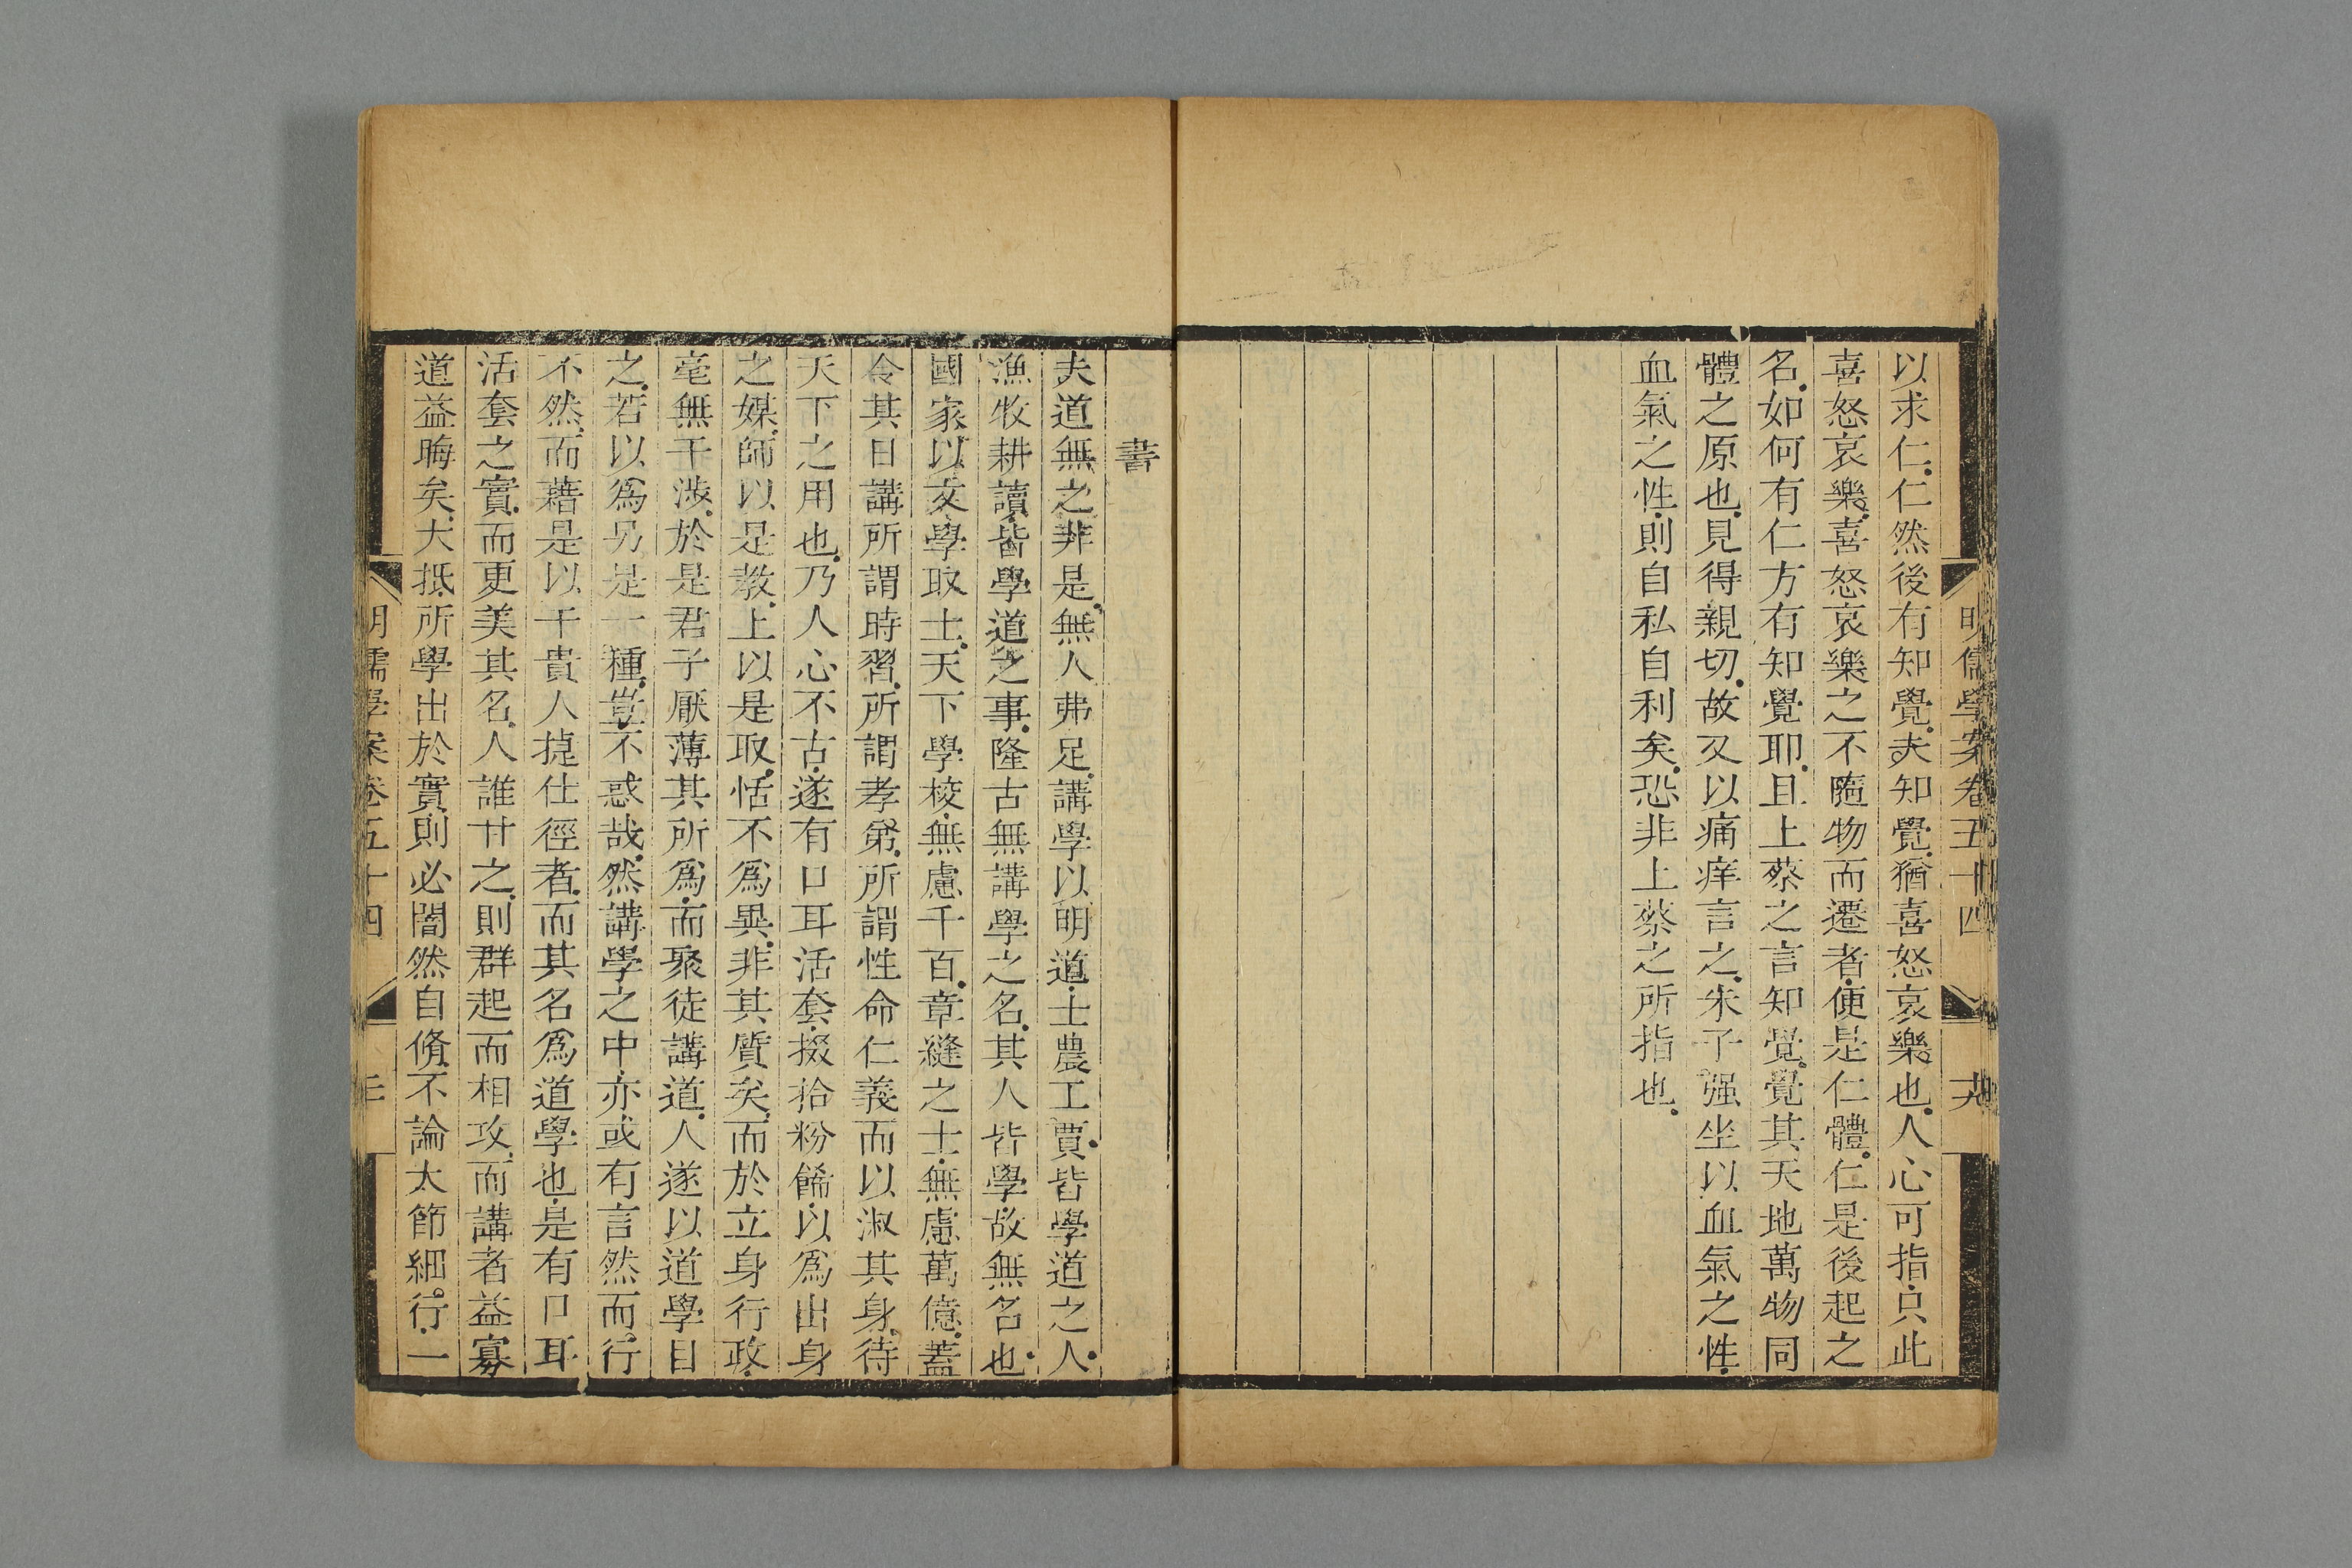 明儒學案卷五十四
十九
以求仁仁然後有知覺夫知覺猶喜怒哀樂也人心可指只此
喜怒哀樂喜怒哀樂之不隨物而遷者便是仁體仁是後起之
名如何有仁方有知覺耶且上蔡之言知覺覺其天地萬物同
體之原也見得親切故又以痛痒言之朱子强坐以血氣之性
血氣之性則自私自利矣恐非上蔡之所指也
書
夫道無之非是無人弗足講學以明道士農工賈皆學道之人
漁牧耕讀皆學道之事隆古無講學之名其人皆學故無名也
國家以文學取士天下學校無慮千百章縫之士無慮萬億蓋
令其日講所謂時習所謂孝弟所謂性命仁義而以淑其身待
天下之用也乃人心不古遂有口耳活套掇拾粉餙以爲出身
之媒師以是教上以是取恬不爲異非其質矣而於立身行政
毫無干涉於是君子厭薄其所爲而聚徒講道人遂以道學目
之若以爲另是一種豈不惑哉然講學之中亦或有言然而行
不然而藉是以干貴人捷仕徑者而其名爲道學也是有口耳
活套之實而更美其名人誰甘之則群起而相攻而講者益寡
道益晦矣大抵所學出於實則必闇然自脩不論大節細行一
明儒學案卷五十四